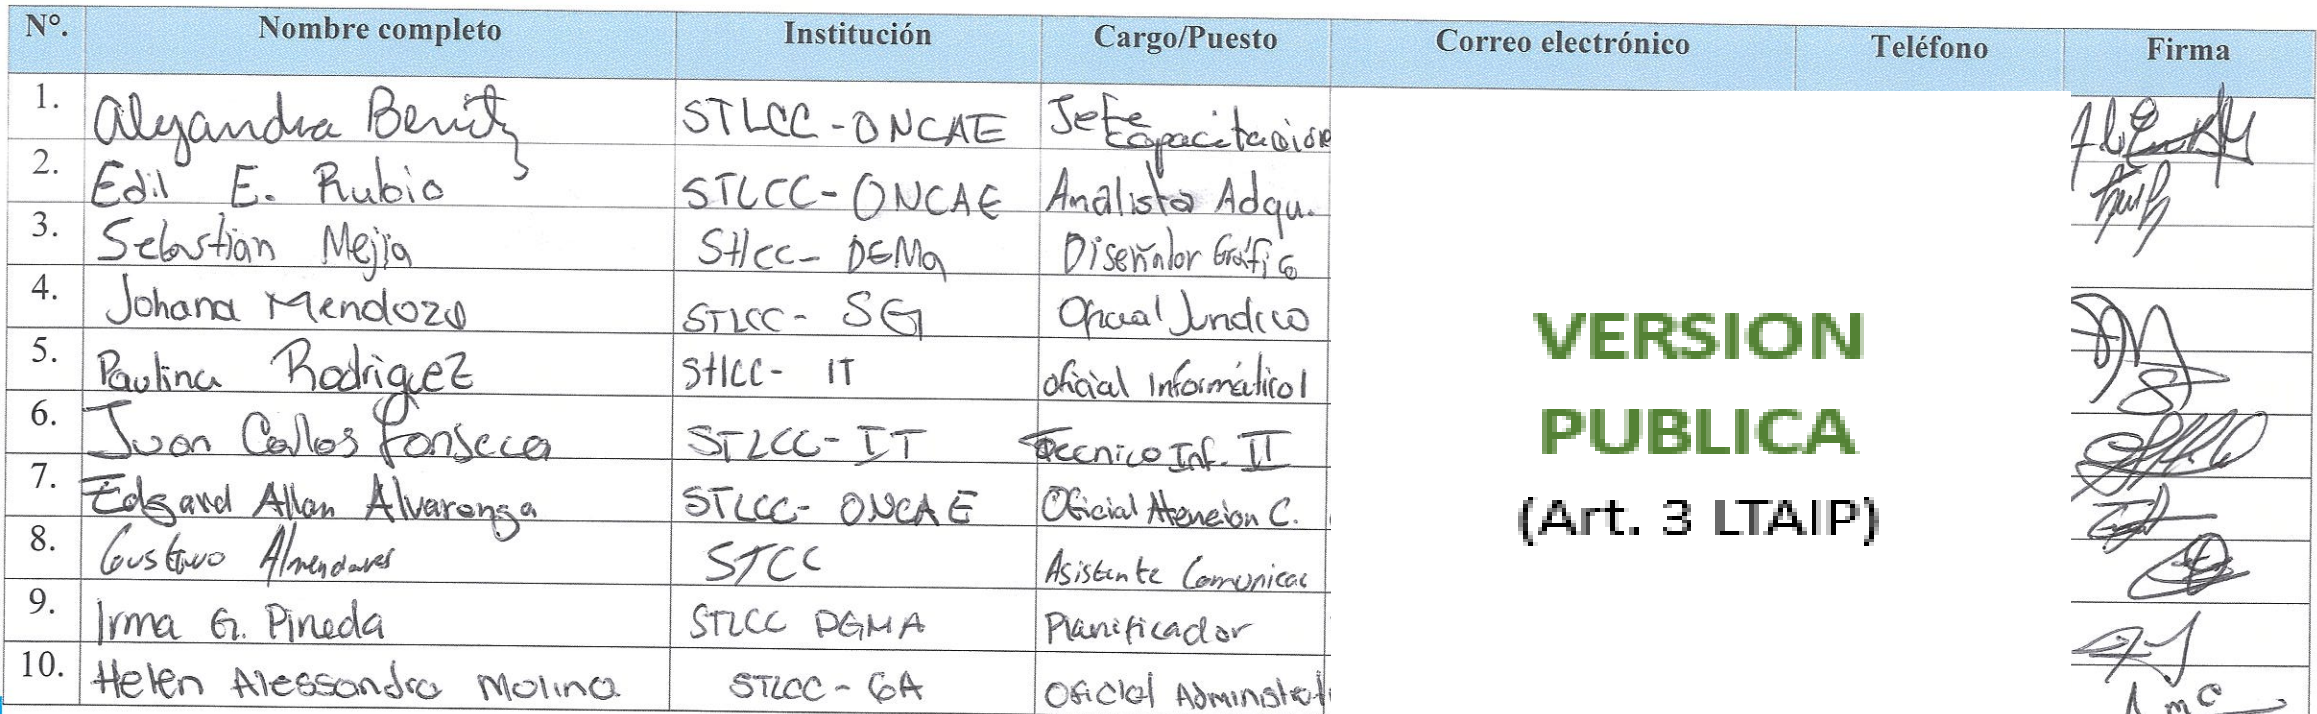 N°. Nombre completo Institución Cargo/Puesto Correo electrónico Teléfono Firma
1. Alejandra Benitz STLCC-ONCAE Jefe Capacitación
2. Edil E. Rubio STLCC-ONCAE Analista Adqu.
3. Sebastian Mejía Stlcc- DGMa Diseñador Gráfico
4. Johana Mendoza STLCC- SG Oficial Jurídico
5. Paulina Rodriguez Stlcc- IT oficial Informático I
6. Juan Carlos Fonseca STLCC-IT Tecnico Inf. II
7. Edgard Allan Alvarenga STLCC- ONCAE Oficial Atencion C.
8. Gustavo Almendares STCC Asistente Comunicac
9. Irma G. Pineda STLCC DGMA Planificador
10. Helen Alessandra Molina STLCC-GA Oficial Administrati
VERSION
PUBLICA
(Art. 3 LTAIP)